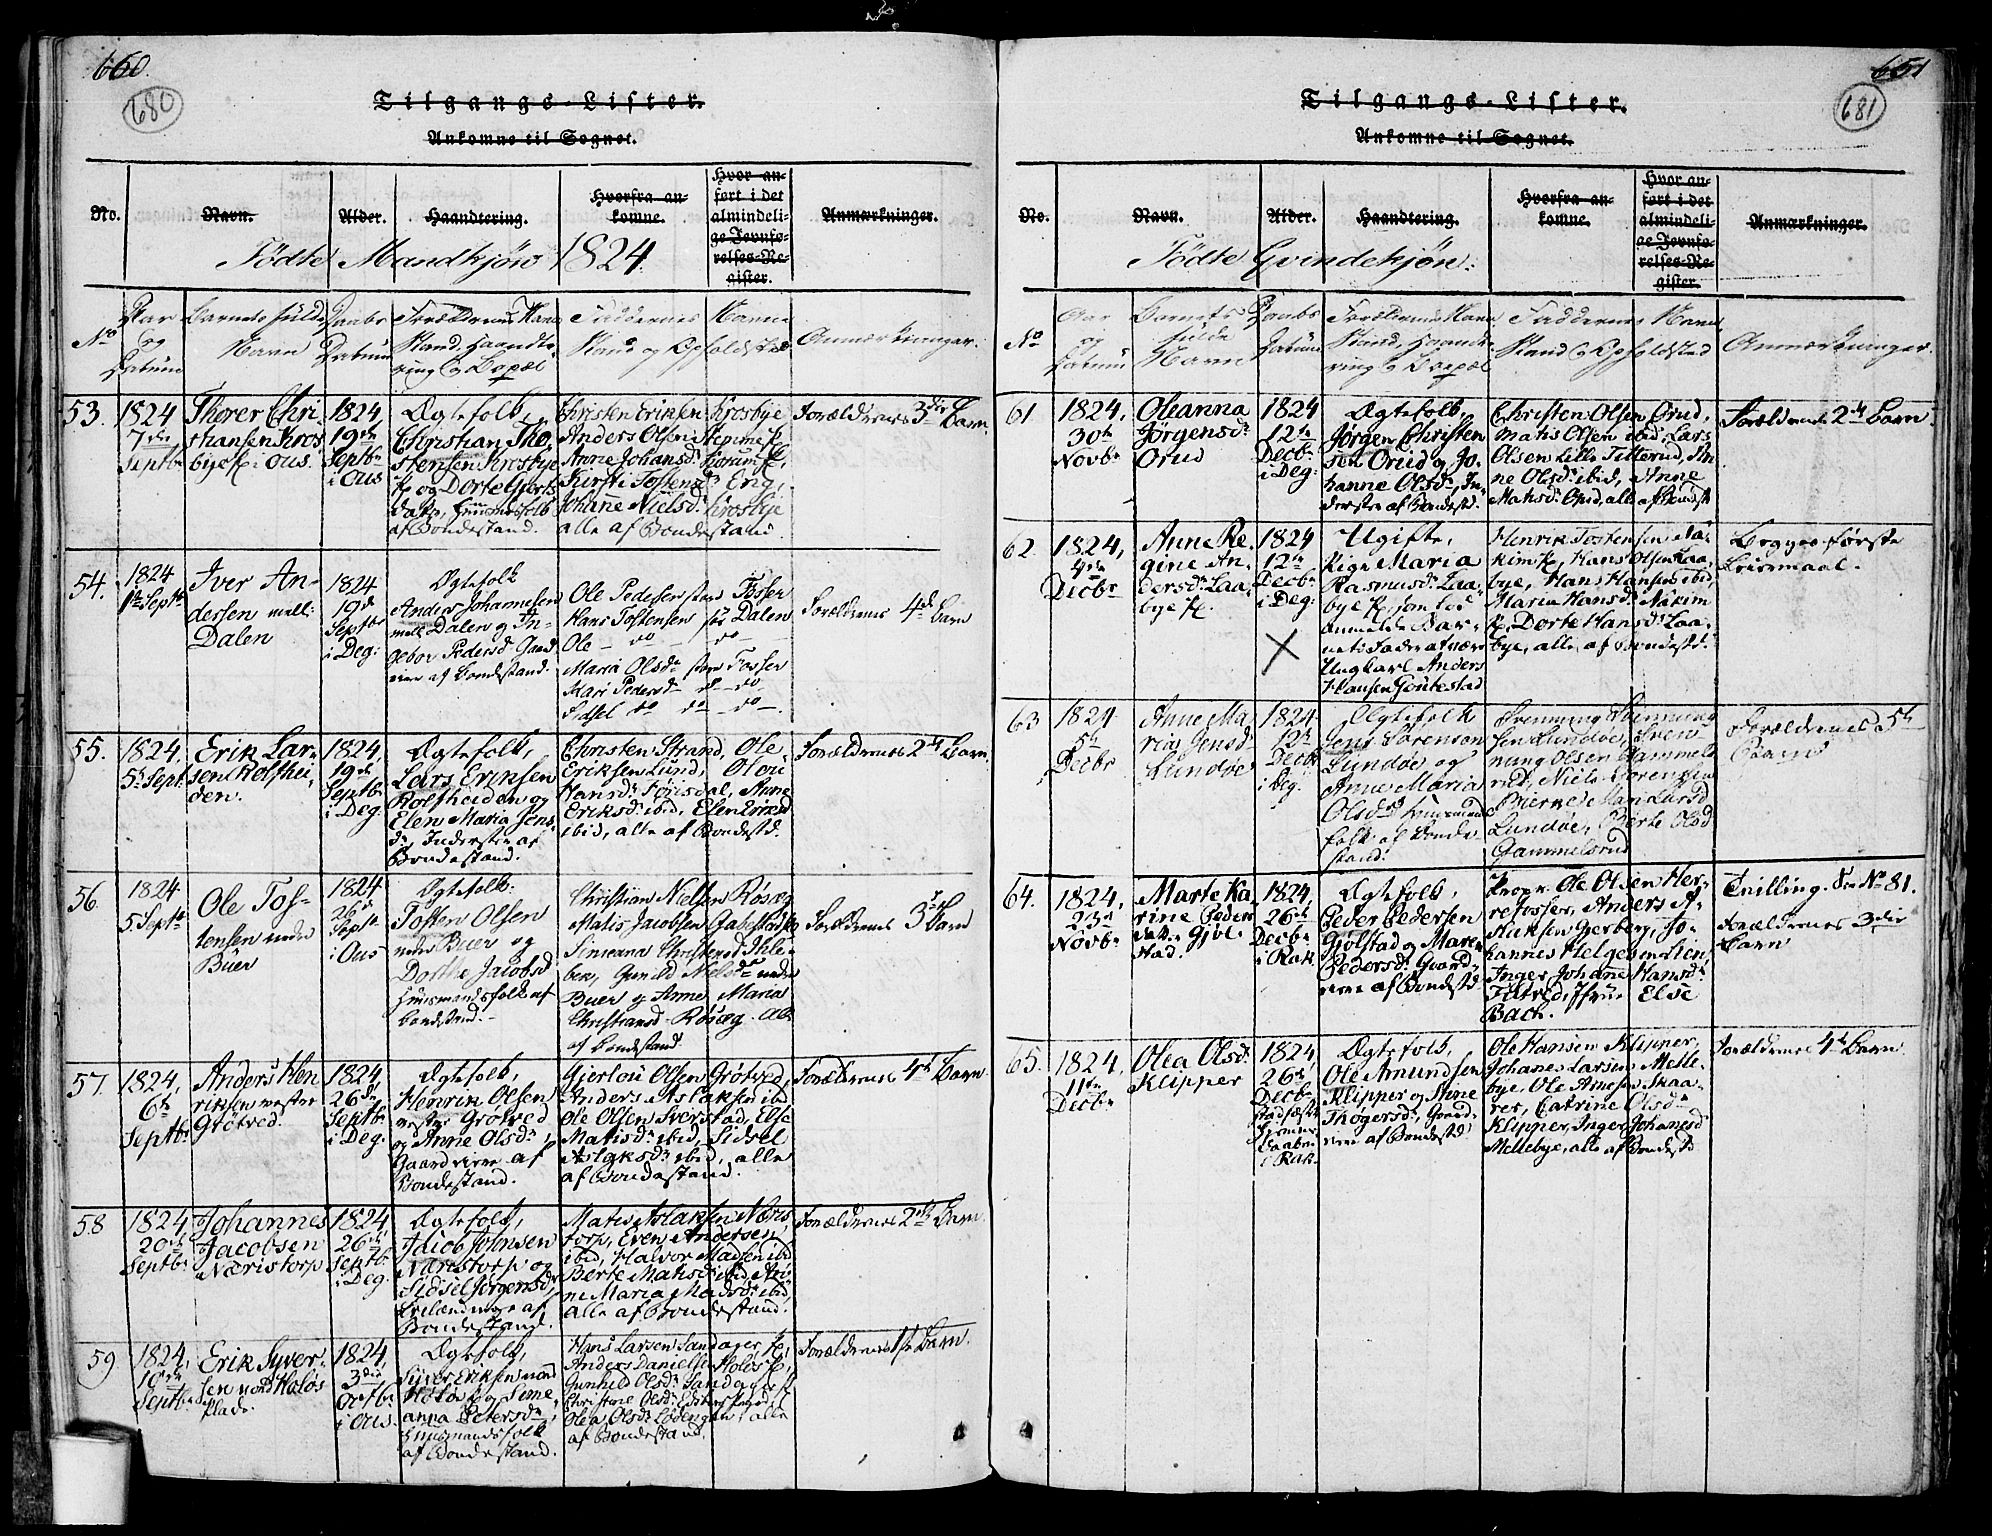 660.
680
Tilgangs-Lister.
Ankomne til Sognet.
No.
Navn.
Alder.
Haandtering.
Hvorfra an-
komne.
Hvor an-
ført i det
almindeli-
ge Jevnfø-
relses-Re-
gister.
Anmærkninger.
Födte Mandkjön 1824.
No
Aar
og
Datum
Barnets fulde
Navn
Daabs
Datum
Forældrenes Navn
Stand, Haandte-
ring og Bopæl
Faddernes Navne
Stand og Opholdsted
Anmærkninger.
53.
1824
7de
Septbr
Thorer Chri-
stiansen Kros-
bye i Ous.
1824,
19de
Septbr
i Ous
Ægtefolk,
Christian Tho-
stensen Krosbye
og Dorte
Huusmandsfolk
af Bondestand.
Christen Eriksen Krosbye
Anders Olsen
Anne Johansdr
Kirsti Tostensdr Erig,
Johanne Nielsdr Krosbye
alle af Bondestand
Forældrenes 3die Barn.
54.
1824
1te Septr
Iver An-
dersen mell:
Dalen
1824
19de
Septbr
i Deg:
Ægtefolk
Anders Johannesen
mell Dalen og In-
gebor Pedersdr Gaard
eiere af Bondestand.
Ole Pedersen store Fosser
Hans Tostensen för Dalen
Ole do do
Maria Olsdr store Fosser
Kari Pedersdr do do
Sidsel do do do
Forældrenes 4de Barn
55.
1824,
5te Septr
Erik Lar-
sen Rolfshei-
den.
1824,
19de
Septbr
i Deg:
Ægtefolk,
Lars Eriksen
Rolfsheiden og
Elen Maria Jens-
dr, Inderster af
Bondestand.
Christen Strand, Ole
Eriksen Lund, Olou
Hansdr Anne
Eriksdr ibid, Elen
ibid, alle af Bondestd.
Forældrenes 2det Barn.
56
1824
5 Septr
Ole Tos-
tensen nedre
Buer
1824
26de
Septr
i Ous
Ægtefolk:
Tosten Olsen
nedre Buer og
Dorthe Jacobsd
Huusmandsfolk af
bondestand.
Christian Nielsen Rösæg
Matis Jacobsen Gabestad
Simeana Christensd
Gunild Nielsdr nedre
Buer og Anne Maria
Christiansd Rösæg. Alle
af bondestand.
Forældrenes 3de Barn
57.
1824,
6te
Septbr.
Anders Hen-
riksen vestre
Grötved.
1824,
26de
Septbr
i Deg:
Ægtefolk,
Henrik Olsen
vestre Grötved
og Anne Olsdr,
Gaardeiere af
Bondestand.
Gierlou Olsen Grötved,
Anders Aslaksen ibid
Ole Olsen Sverstad, Else
Matisdr ibid, Sidsel
Aslaksdr ibid, alle
af Bondestand.
Forældrenes 4de Barn
58
1824,
20de
Septbr
Johannes
Jacobsen
Næristorp
1824,
26de
Septbr
i Deg.
Ægtefolk,
Jacob Johnsen
Næristorp og
Sidsel Jörgensdr,
af
Bondestand.
Matis Aslaksen Næris
torp, Even Andersen
ibid, Halvor Madsen ibid
Berte Matisdr ibid,
ne Maria Madsdr ibid,
alle af Bondestand.
Forældrenes 2det Barn.
59
1824,
10de
Septbr
Erik Syver-
sen nord Holös
plads.
1824,
3die
Octbr
i Ous.
Ægtefolk,
Syver Eriksen nord
Holös og Sime-
anna Petersdr,
Huusmandsfolk
af Bondestand.
Hans Larsen Sandager,
Anders Danielsen Holös
Gunhild Olsdr Sandager
Christine Olsdr
Olea Olsdr alle
af Bondestand.
Forældrenes 1ste Barn.
651
681
Tilgangs-Lister.
Ankomne til Sognet.
No.
Navn.
Alder.
Haandtering.
Hvorfra an-
komne.
Hvor an-
ført i det
almindeli-
ge Jevnfø-
relses-Re-
gister.
Anmærkninger.
Födte Qvindekjön:
No
Aar
og
Datum
Barnets
fulde
Navn
Daabs
Datum
Forældrenes Navn
Stand, Haandte-
ring og Bopæl
Faddernes Navn
Stand og Opholdsted
Anmærkninger
61
1824,
30te
Novbr
Oleanna
Jörgensdr
Orud
1824
12te
Decbr
i Deg:
Ægtefolk,
Jörgen Christen
sen Orud og Jo-
hanne Olsdr, In-
derster af Bondestd.
Christen Olsen Orud,
Matis Olsen ibid, Lars
Olsen Lille Titterud, An-
ne Olsdr ibid, Anne
Matisdr ibid, alle af Bondestd
Forældrenes 2det Barn.
62.
1824,
4de
Decbr
Anne Re-
gine An-
dersdr Laa-
bye
1824
12te
Decbr
i Deg:
Ugifte,
Pige Maria
Rasmusdr Laa-
bye, som lod
anmelde Bar-
nets Fader at være
Ungkarl Anders
Hansen Goutestad
Henrik Tostensen Na-
kim, Hans Olsen Laa-
bye, Hans Hansen ibid,
Maria Hansdr Nakim
Dorte Hansdr Laa-
bye, alle af Bondestd.
Begges förste
Leiermaal.
63
1824.
5te
Decbr
Anne Ma-
ria Jensdr
Lundöe
1824.
12te
Decbr
i Deg.
Ægtefolk
Jens Sörensen
Lundöe og
Anne Maria
Olsdr Huusmands
folk af Bonde-
stand.
Svenning Svenning
sen Lundöe, Sven-
nung Olsen Gammels
rud, Niels Sörensen
Bierke, Mari Larsd
Lundöe, Berte Olsd
Gammelsrud
Forældrenes 5te
Barn
64.
1824.
23de
Novbr
Marte Ka-
rine Peders
datter Gjöl-
stad.
1824,
26de
Decbr
i Rak.
Ægtefolk,
Peder Pedersen
Gjölstad og Maren
Pedersdr Gaard-
eiere af Bondestd
Propr. Ole Olsen Her-
refosser, Anders A-
slaksen Gerberg, Jo-
hannes Helgesen Lien,
Inger Johane Hansdr
Titved, Jfru Else
Bach.
Tvilling. See No 81.
Forældrenes 3die
Barn
65.
1824,
11te
Decbr
Olea Olsdr
Klipper
1824,
26de
Decbr
stadfæstet
Hjemme-
daaben
i Rak.
Ægtefolk,
Ole Amundsen
Klipper og Mine
Thögersdr, Gaard-
eiere af Bondestd
Ole Hansen Klipper,
Johanes Larsen Melle-
bye, Ole Arnesen Skaa-
rer, Catrine Olsdr
Klipper, Inger Johanesd
Mellebye, alle af Bondestd
Forældrenes 4de Barn